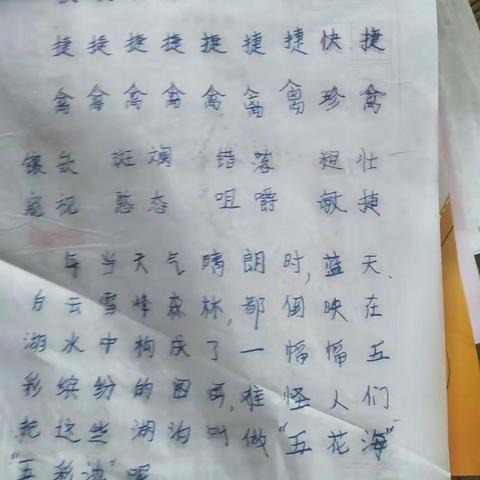 捷捷捷捷捷捷捷快捷
禽禽禽禽禽禽禽珍禽
镶嵌 斑斓 错落 粗壮
窥视 憨态 咀嚼 敏捷
每当天气晴朗时,蓝天、
白云雪峰森林,都倒映在
湖水中构成了一幅幅五
彩缤纷的图画,难怪人们
把这些湖泊叫做“五花海”
“五彩池”呢